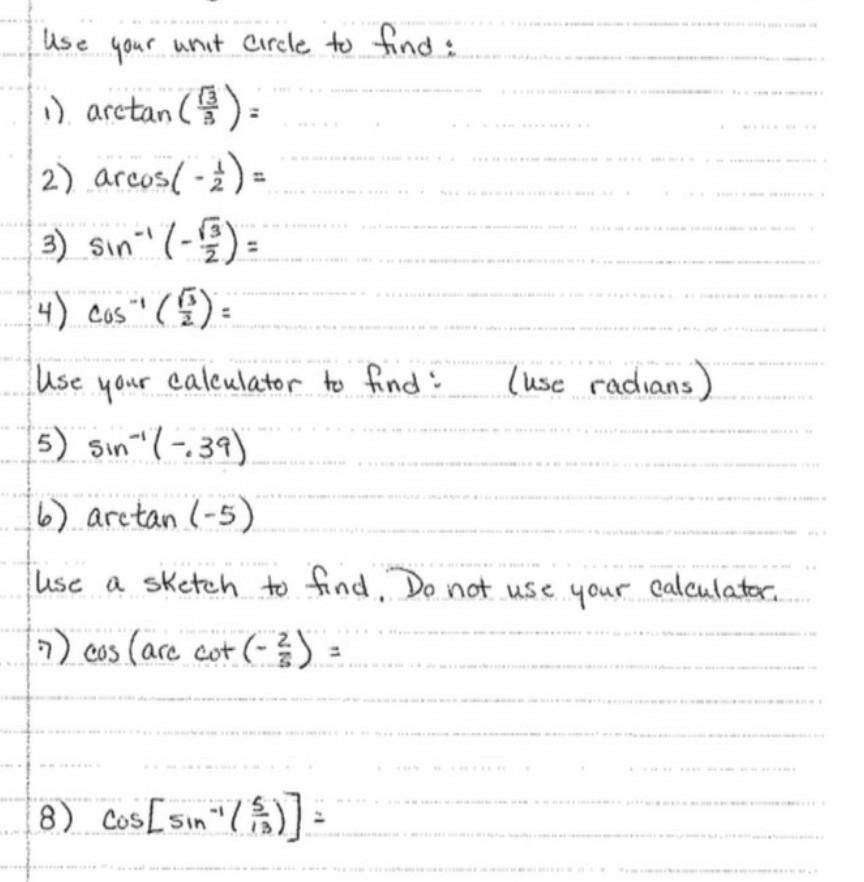 Use your unit circle to find:
1) arctan(√3/3) =
2) arcos(-1/2) =
3) sin⁻¹(-√3/2) =
4) cos⁻¹(√3/2) =
Use your calculator to find: (use radians)
5) sin⁻¹(-.39)
6) arctan (-5)
Use a sketch to find. Do not use your calculator.
7) cos(arc cot(-2/5) =
8) cos[sin⁻¹(5/13)] =